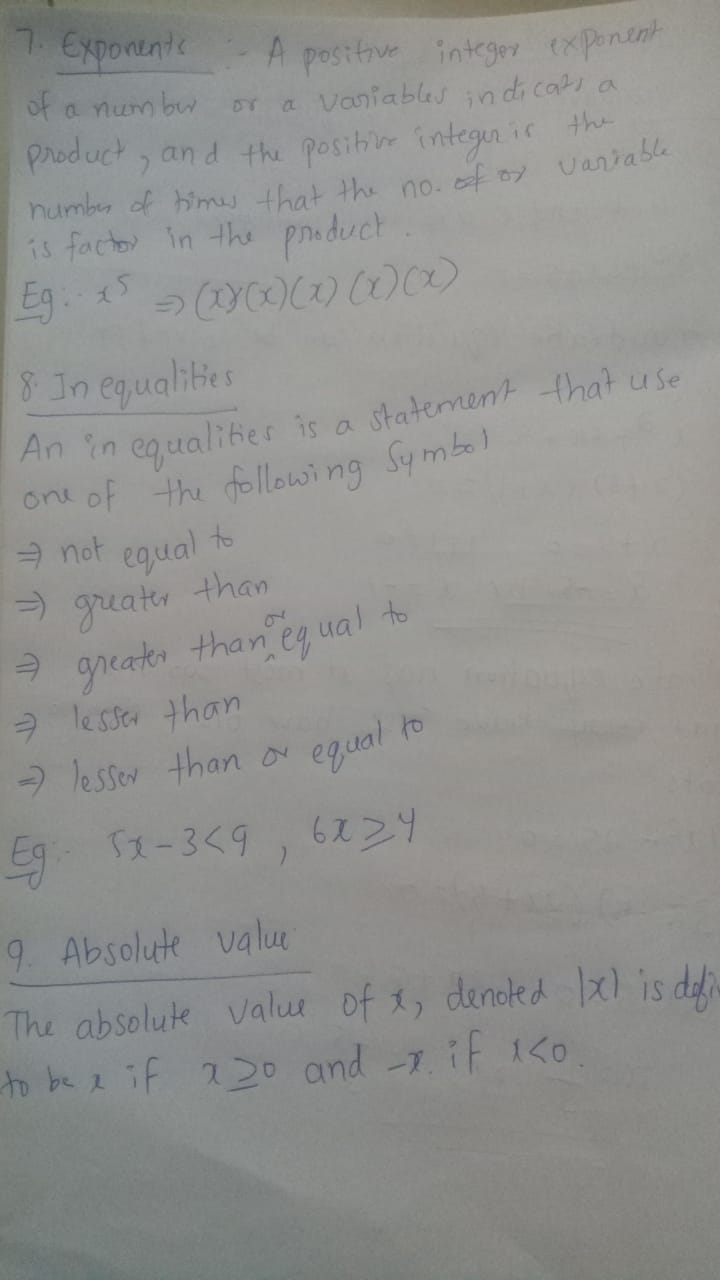 7. Exponents :- A positive integer exponent
of a number or a variables indicats a
product, and the positive integer is the
number of times that the no. of or variable
is factor in the product.
Eg:- x⁵ ⇒ (x)(x)(x)(x)(x)
8. Inequalities
An inequalities is a statement that use
one of the following Symbol
⇒ not equal to
⇒ greater than
⇒ greater than or equal to
⇒ lesser than
⇒ lesser than or equal to
Eg:- 5x-3<9, 6x≥4
9. Absolute value
The absolute value of x, denoted |x| is defi
to be x if x≥0 and -x. if x<0.